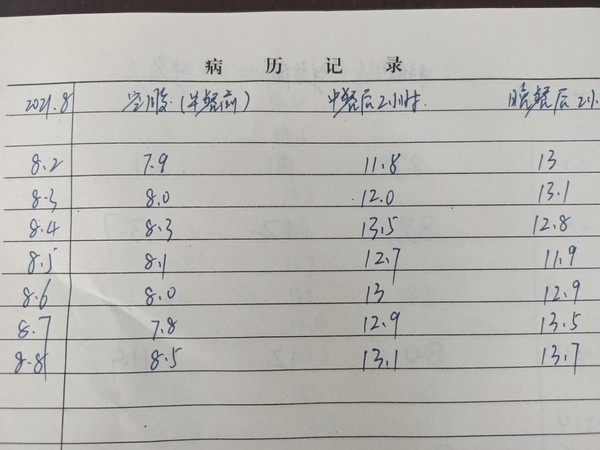 病 历 记 录
2021.8 空腹(早餐前) 中餐后2小时. 晚餐后2小
8.2 7.9 11.8 13
8.3 8.0 12.0 13.1
8.4 8.3 13.5 12.8
8.5 8.1 12.7 11.9
8.6 8.0 13 12.9
8.7 7.8 12.9 13.5
8.8 8.5 13.1 13.7